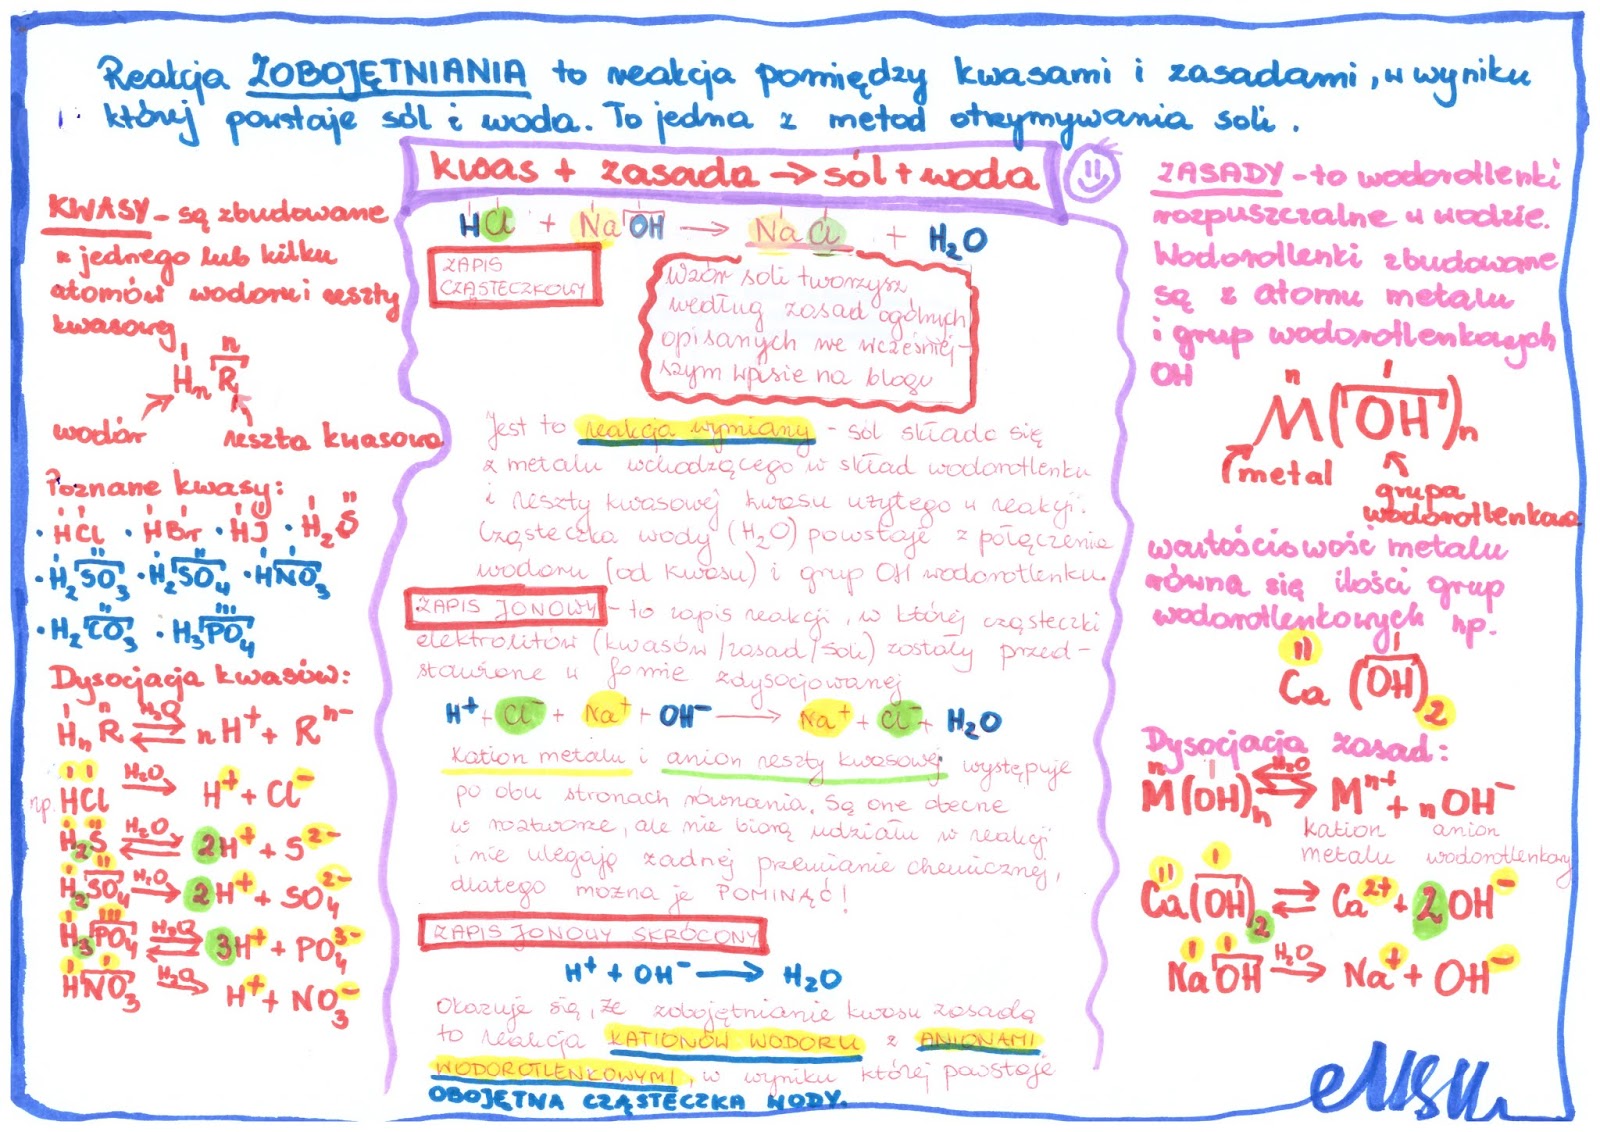 Reakcja ZOBOJĘTNIANIA to reakcja pomiędzy kwasami i zasadami, w wyniku
której powstaje sól i woda. To jedna z metod otrzymywania soli.
kwas + zasada → sól + woda
HCl + NaOH → NaCl + H₂O
ZAPIS
CZĄSTECZKOWY
Wzór soli tworzysz
według zasad ogólnych
opisanych we wcześniej-
szym wpisie na blogu
Jest to reakcja wymiany - sól składa się
z metalu wchodzącego w skład wodorotlenku
i reszty kwasowej kwasu użytego w reakcji.
Cząsteczka wody (H₂O) powstaje z połączenia
wodoru (od kwasu) i grup OH wodorotlenku.
ZAPIS JONOWY - to zapis reakcji, w której cząsteczki
elektrolitów (kwasów/zasad/soli) zostały przed-
stawione w formie zdysocjowanej
H⁺ + Cl⁻ + Na⁺ + OH⁻ → Na⁺ + Cl⁻ + H₂O
Kation metalu i anion reszty kwasowej występuje
po obu stronach równania. Są one obecne
w roztworze, ale nie biorą udziału w reakcji
i nie ulegają żadnej przemianie chemicznej,
dlatego można je POMINĄĆ!
ZAPIS JONOWY SKRÓCONY
H⁺ + OH⁻ → H₂O
Okazuje się, że zobojętnianie kwasu zasadą
to reakcja KATIONÓW WODORU z ANIONAMI
WODOROTLENKOWYMI, w wyniku której powstaje
OBOJĘTNA CZĄSTECZKA WODY.
KWASY - są zbudowane
z jednego lub kilku
atomów wodoru i reszty
kwasowej
I n
HₙR
wodór reszta kwasowa
Poznane kwasy:
· HCl · HBr · HJ · H₂S
· H₂SO₃ · H₂SO₄ · HNO₃
· H₂CO₃ · H₃PO₄
Dysocjacja kwasów:
HₙR ⇄ (H₂O) nH⁺ + Rⁿ⁻
np. HCl → (H₂O) H⁺ + Cl⁻
H₂S ⇄ (H₂O) 2H⁺ + S²⁻
H₂SO₄ → (H₂O) 2H⁺ + SO₄²⁻
H₃PO₄ ⇄ (H₂O) 3H⁺ + PO₄³⁻
HNO₃ → (H₂O) H⁺ + NO₃⁻
ZASADY - to wodorotlenki
rozpuszczalne w wodzie.
Wodorotlenki zbudowane
są z atomu metalu
i grup wodorotlenkowych
OH
n I
M(OH)ₙ
metal grupa
wodorotlenkowa
wartościowość metalu
równa się ilości grup
wodorotlenkowych np.
II I
Ca(OH)₂
Dysocjacja zasad:
M(OH)ₙ ⇄ (H₂O) Mⁿ⁺ + nOH⁻
kation anion
metalu wodorotlenkowy
Ca(OH)₂ ⇄ Ca²⁺ + 2OH⁻
NaOH → (H₂O) Na⁺ + OH⁻